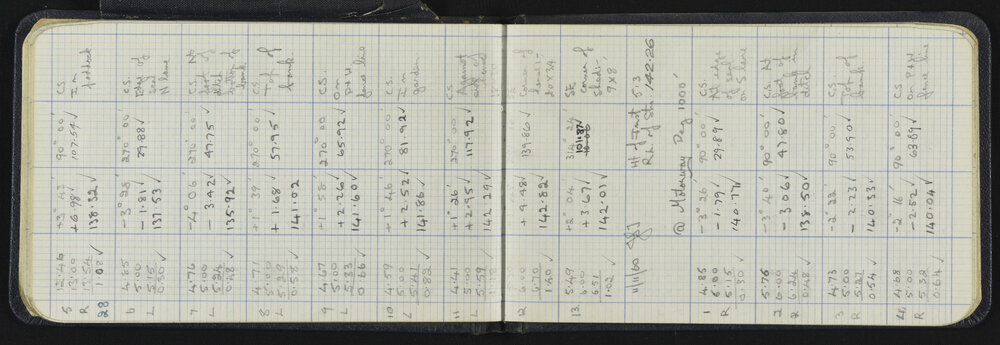 5 12.46 +3° 43' 90° 00' C.S.
R 13.00 +6.98✓ 107.54✓ I m
28 13.54 138.32✓ paddock
1.08✓
6 4.85 -3° 28' 270° 00' C.S.
5.00 -1.81✓ 29.88✓ Edge of
L 5.15 137.53✓ seal
0.30✓ N lane
7 4.76 -4° 06' 270° 00' C.S. Nth
5.00 -3.42✓ 47.75✓ of
L 5.24 135.92✓
0.48✓ bank
8 4.71 +1° 39' 270° 00' C.S.
5.00 +1.68✓ 57.95✓ Top of
L 5.29 141.02 bank
0.58✓
9 4.67 +1° 58' 270° 00' C.S.
5.00 +2.26✓ 65.92✓ on
L 5.33 141.60✓
0.66✓ fence line
10 4.59 +1° 46' 270° 00' C.S.
5.00 +2.52✓ 81.92✓ I m
L 5.41 141.86✓ garden
0.82✓
11 4.41 +1° 26' 270° 00' C.S.
5.00 +2.95✓ 117.92✓ Against
L 5.59 142.29✓
12 139.86✓ Corner of
+4.48✓
142.82✓ 20x24
1.60✓
13 5.49 +2° 04' 312 24 Stk
6.00 +3.67✓ 101.87 Corner of
6.51 142.01✓
1.02✓ 9x8
11/11/60 Ht of Inst 5.03
R.L. of Stn. 142.26
@ Motorway Peg 1000'
1 4.85 -3° 26' 90° 00' C.S.
5.00 -1.79✓ 29.89✓ Nth edge
R 5.15 140.77✓ of seal
0.30✓ on S lane
2 5.76 -3° 40' 90° 00' C.S. Nth
6.00 -3.06✓ 47.80✓ foot of
R 6.24 138.50✓ bank in
0.48✓ ditch
3 4.73 -2° 22' 90° 00' C.S.
5.00 -2.23✓ 53.90✓ Top of
R 5.27 140.33✓ bank
0.54✓
4 4.68 -2° 16' 90° 00' C.S.
5.00 -2.52✓ 63.89✓ on Peg
R 5.32 140.04✓ fence line
0.64✓